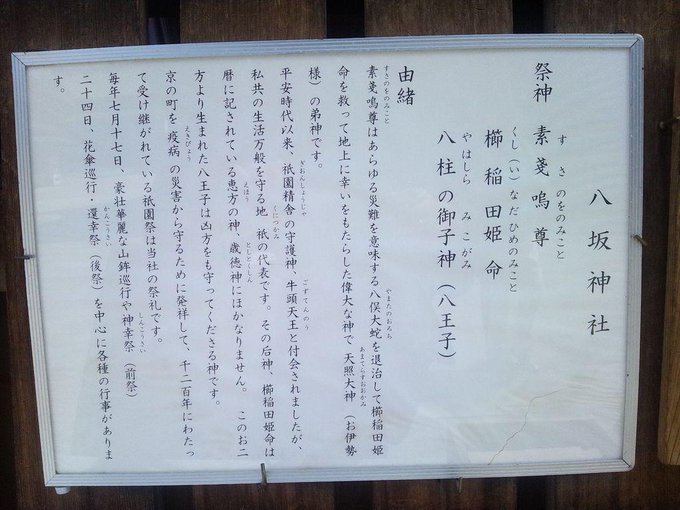 八坂神社
祭神　素戔嗚尊
すさのをのみこと
櫛稲田姫命
くし（い）なだひめのみこと
八柱の御子神（八王子）
やはしらみこがみ
由緒
素戔嗚尊はあらゆる災難を意味する八俣大蛇を退治して櫛稲田姫
すさのをのみこと　やまたのおろち
命を救って地上に幸いをもたらした偉大な神で　天照大神　（お伊勢
あまてらすおおかみ
様）の弟神です。
平安時代以来、祇園精舎の守護神、牛頭天王と付会されましたが、
ぎおんしょうじゃ　ごずてんのう
私共の生活万般を守る地　祇の代表です。その后神、櫛稲田姫命は
くにつかみ
暦に記されている恵方の神、歳徳神にほかなりません。　このお二
えほう　としとくしん
方より生まれた八王子は凶方をも守ってくださる神です。
京の町を　疫病　の災害から守るために発祥して、千二百年にわたっ
えきびょう
て受け継がれている祇園祭は当社の祭礼です。
毎年七月十七日、豪壮華麗な山鉾巡行や神幸祭（前祭）
しんこうさい
二十四日、花傘巡行・還幸祭（後祭）を中心に各種の行事がありま
かんこうさい
す。